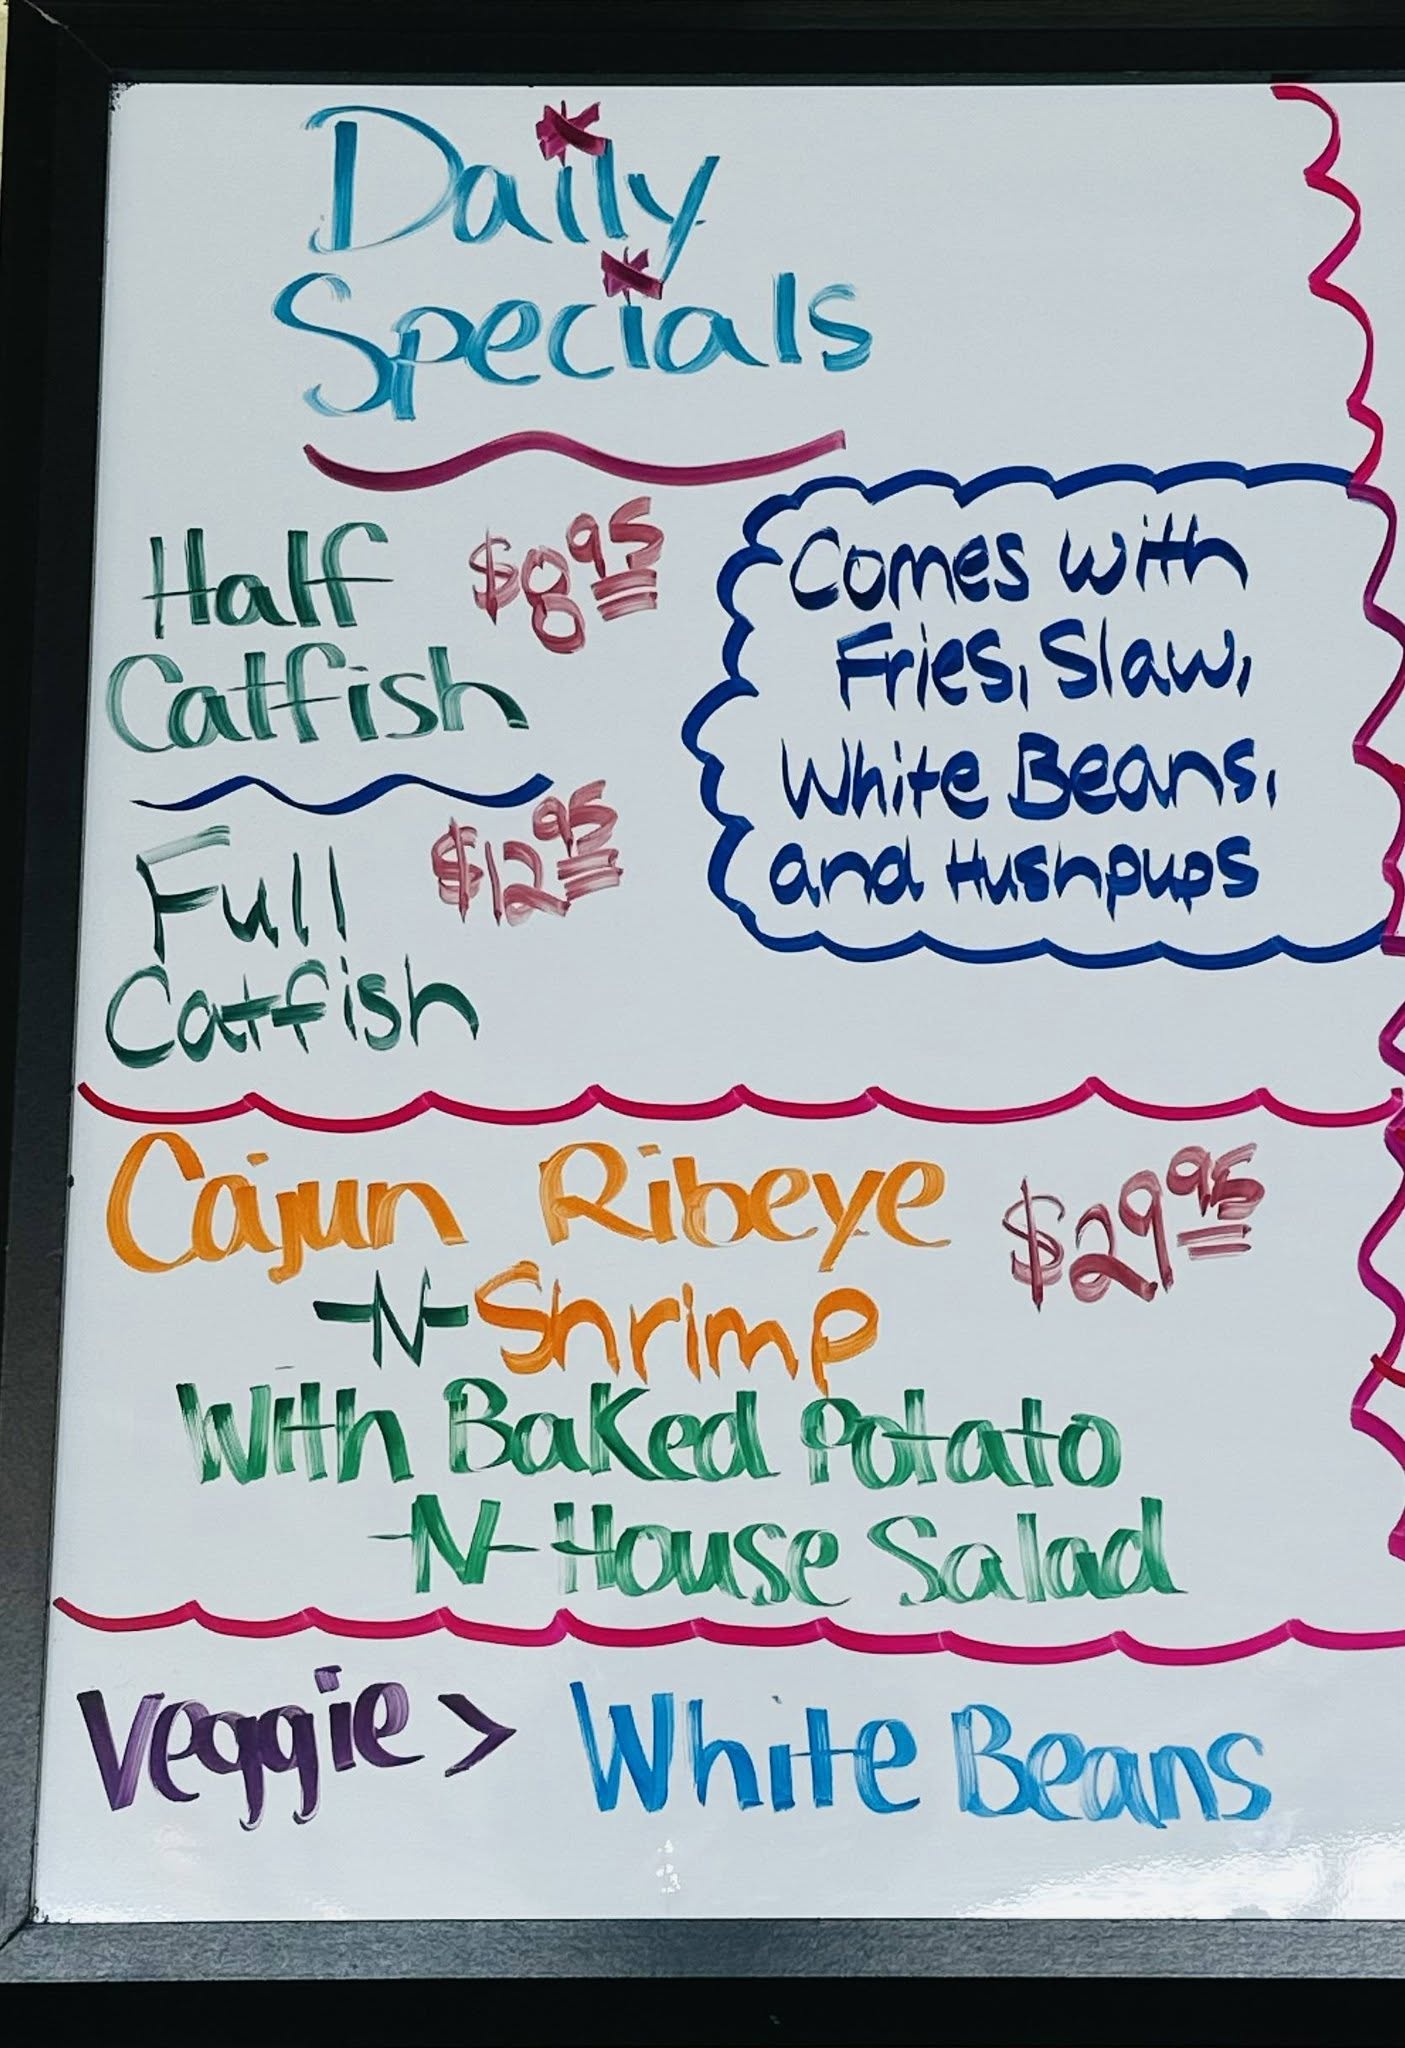 Daily
Specials
Half $8.95
Catfish
Comes with
Fries, Slaw,
White Beans,
and Hushpups
Full $12.95
Catfish
Cajun Ribeye $29.95
-N- Shrimp
With Baked Potato
-N- House Salad
Veggie > White Beans